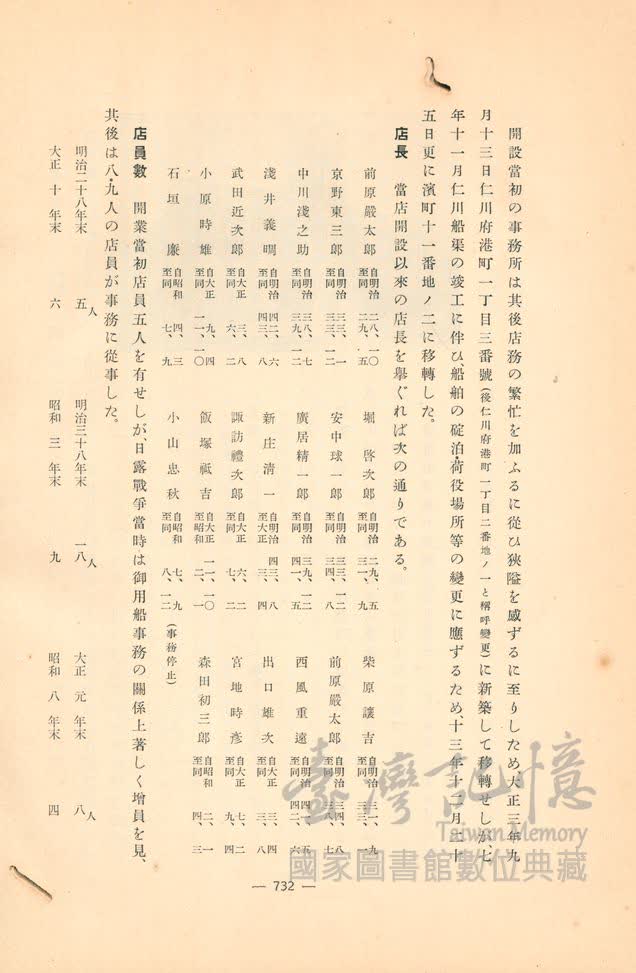 開設當初の事務所は其後店務の繁忙を加ふるに從ひ狹隘を感ずるに至りしため、大正三年九
月十三日仁川府港町一丁目三番號(後仁川府港町一丁目二番地ノ一と稱呼變更)に新築して移轉せしが、七
年十一月仁川船渠の竣工に伴ひ、船舶の碇泊、荷役場所等の變更に應ずるため、十三年十二月二十
五日更に濱町十一番地ノ二に移轉した。
店長 當店開設以來の店長を舉ぐれば次の通りである。
前原嚴太郎 自明治二八、一〇 至同二九、五 堀啓次郎 自明治二九、五 至同三一、九 柴原讓吉 自明治三一、九 至同三三、一
京野東三郎 自明治三三、一 至同三三、一二 安中球一郎 自明治三三、一二 至同三四、八 前原嚴太郎 自明治三四、八 至同三八、七
中川淺之助 自明治三八、七 至同三九、一二 廣居精一郎 自明治三九、一二 至同四一、五 西風重遠 自明治四一、五 至同四二、六
淺井義晭 自明治四二、六 至同四三、八 新庄清一 自明治四三、八 至大正三、四 出口雄次 自大正三、四 至同三、八
武田近次郎 自大正三、八 至同六、二 諏訪禮次郎 自大正六、二 至同七、二 宮地時彥 自大正七、二 至同九、四
小原時雄 自大正九、四 至同一一、一〇 飯塚祗吉 自大正一一、一〇 至同二、一 森田初三郎 自昭和二、一 至同四、三
石垣廉 自昭和四、三 至同七、九 小山忠秋 自昭和七、九 至同八、一二(事務停止)
店員數 開業當初店員五人を有せしが、日露戰爭當時は御用船事務の關係上著しく增員を見、
其後は八、九人の店員が事務に從事した。
明治二十八年末 五人 明治三十八年末 一八人 大正元年末 八人
大正十年末 六 昭和三年末 九 昭和八年末 四
— 732 —
臺灣記憶
Taiwan Memory
國家圖書館數位典藏